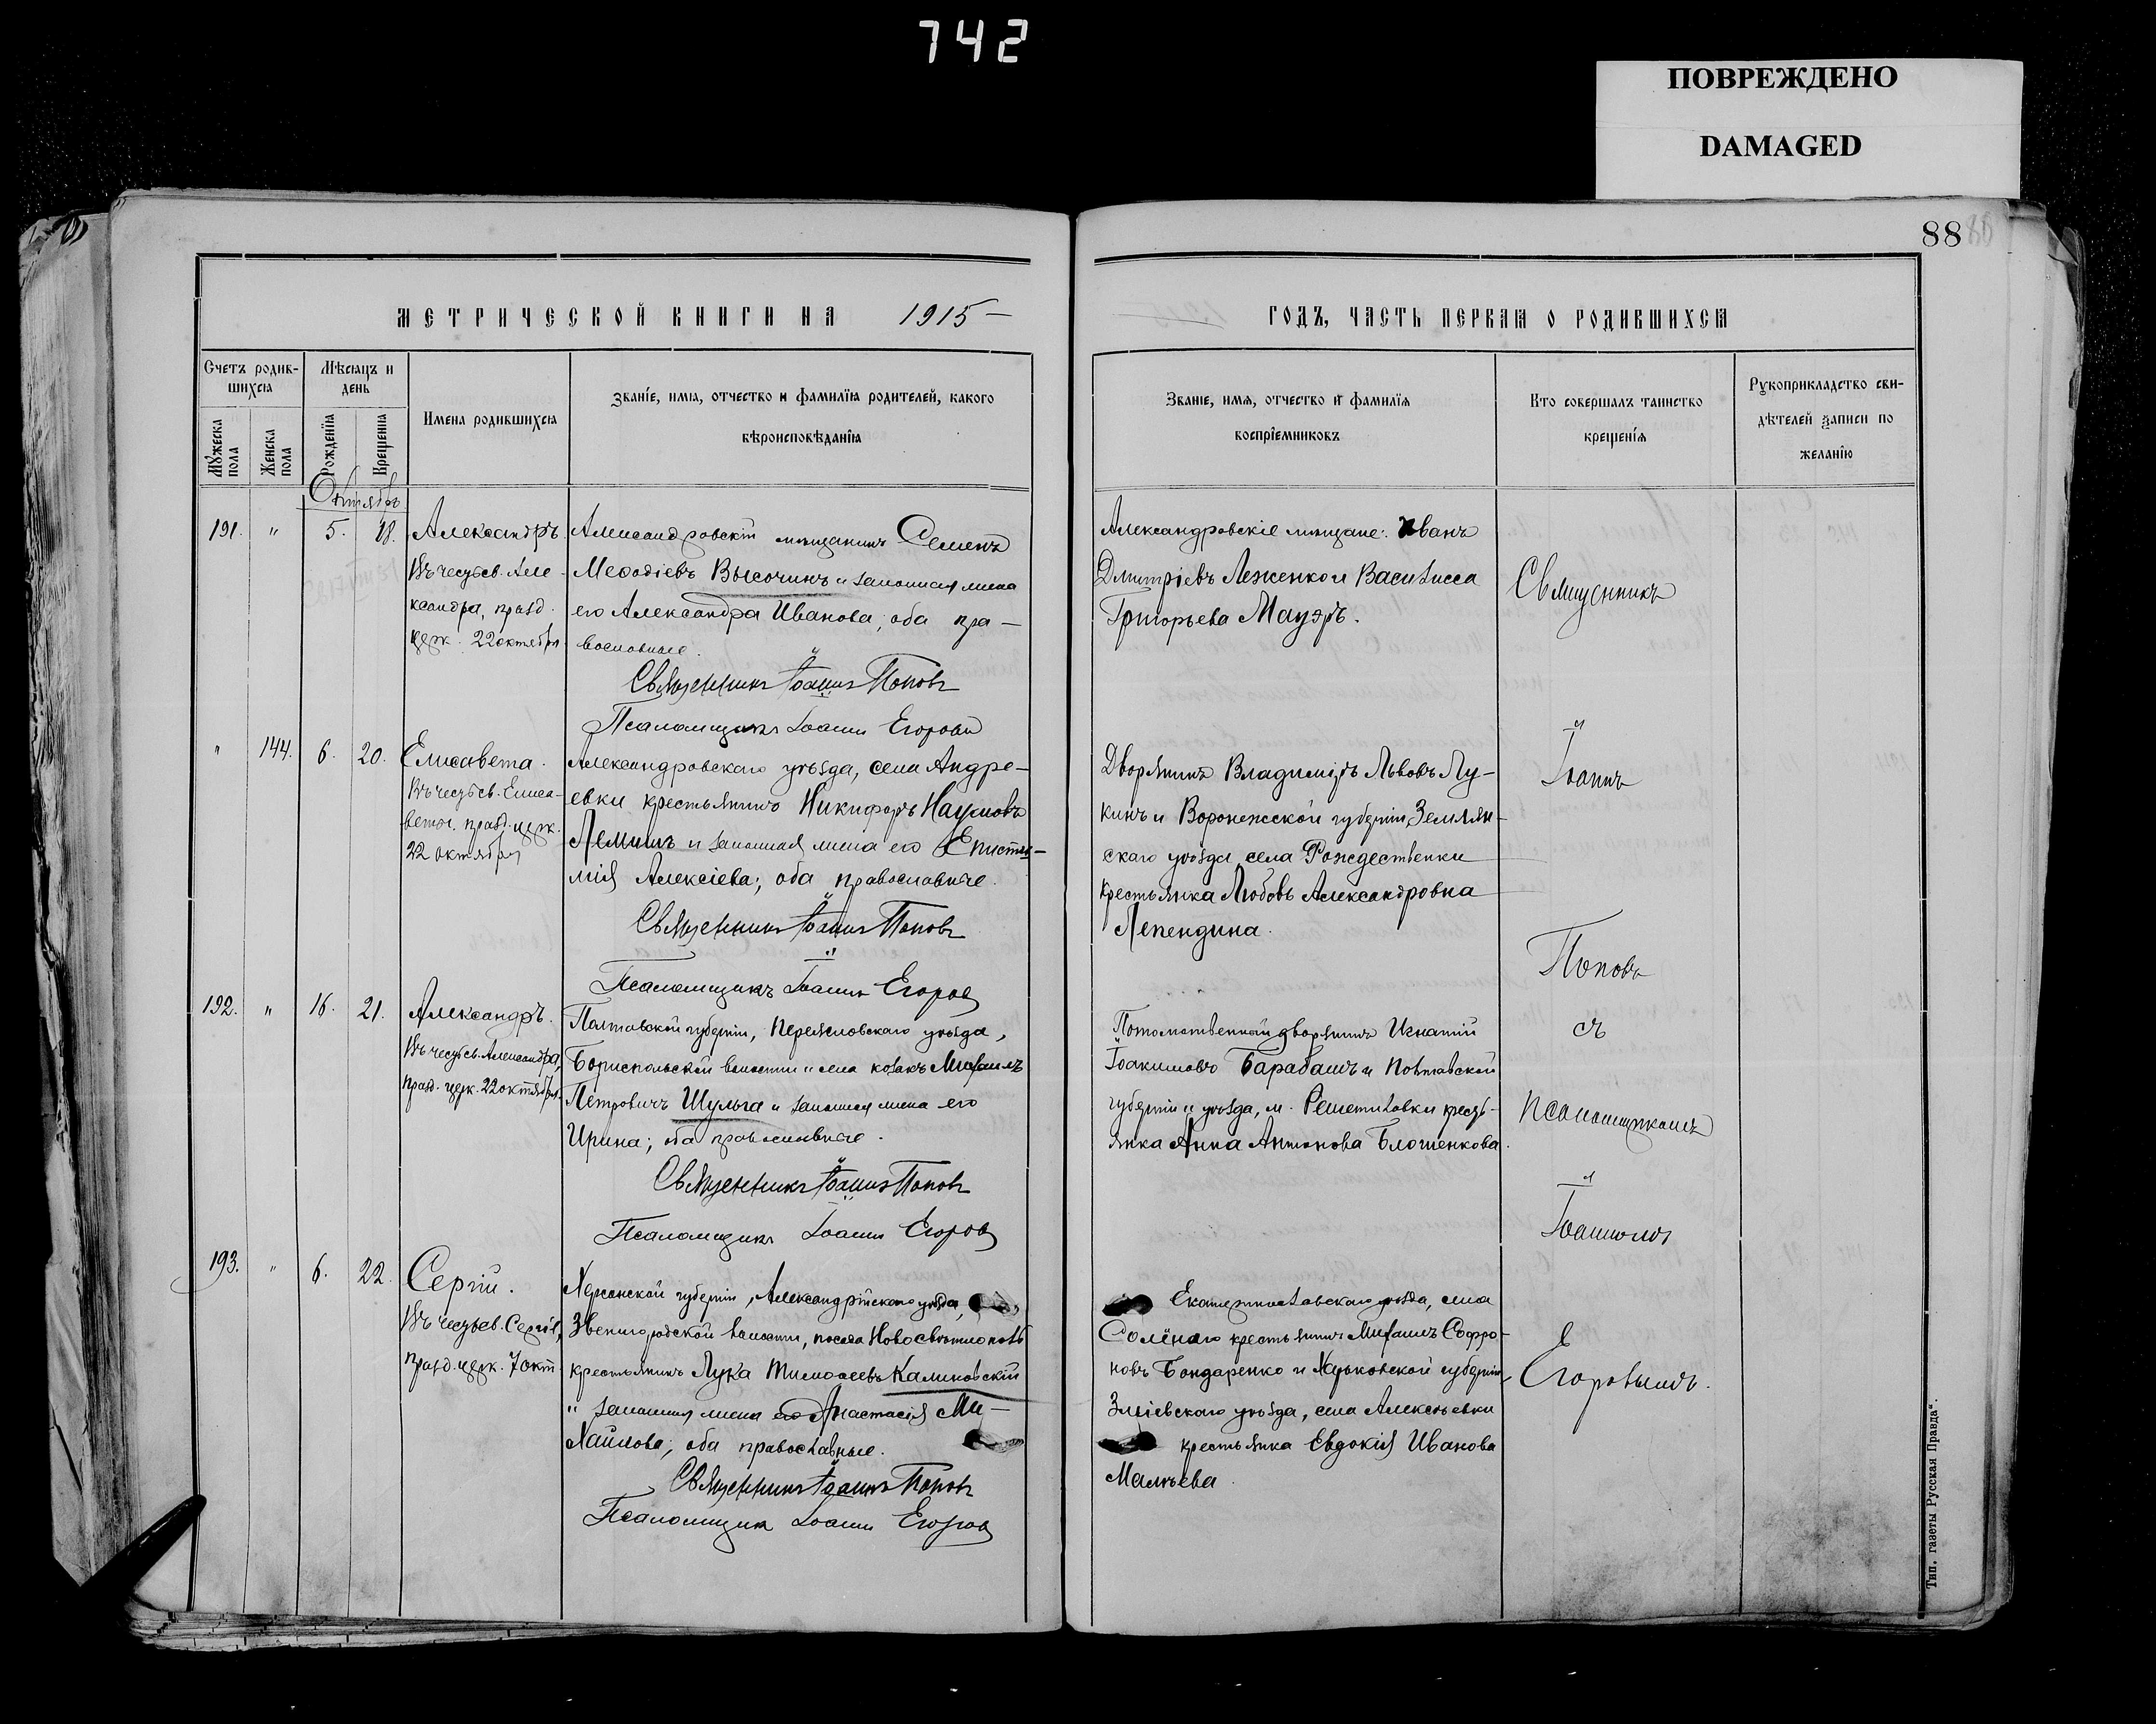 742
ПОВРЕЖДЕНО
DAMAGED
88
МЕТРИЧЕСКОЙ КНИГИ НА 1915 —
ГОДЪ, ЧАСТЬ ПЕРВАЯ О РОДИВШИХСЯ
Счетъ родив-
шихся
Мужеска пола
Женска пола
Мѣсяцъ и
день
Рожденія
Крещенія
Имена родившихся
Званіе, имя, отчество и фамилія родителей, какого
вѣроисповѣданія
Званіе, имя, отчество и фамилія
воспріемниковъ
Кто совершалъ таинство
крещенія
Рукоприкладство сви-
дѣтелей записи по
желанію
Октябрь
191. " 5. 18.
Александръ.
Въ честь св. Але-
ксандра, празд.
церк. 22 октября
Александровскій мѣщанинъ Семенъ
Меѳодіевъ Высочинъ и законная жена
его Александра Иванова; оба пра-
вославные.
Священникъ Іоаннъ Поповъ
Псаломщикъ Іоаннъ Егоровъ
Александровскіе мѣщане: Иванъ
Дмитріевъ Леженко и Василисса
Григорьева Мауэръ.
" 144. 6. 20.
Елисавета.
Въ честь св. Елиса-
веты. празд. церк.
22 октября
Александровскаго уѣзда, села Андре-
евки крестьянинъ Никифоръ Наумовъ
Лемишъ и законная жена его Еписти-
мія Алексіева; оба православные.
Священникъ Іоаннъ Поповъ
Псаломщикъ Іоаннъ Егоровъ
Дворянинъ Владиміръ Львовъ Лу-
кинъ и Воронежской губерніи, Землян-
скаго уѣзда, села Рождественки
крестьянка Любовь Александровна
Лепендина.
192. " 16. 21.
Александръ.
Въ честь св. Александра,
празд. церк. 22 октября.
Полтавской губерніи, Переяловскаго уѣзда,
Бориспольской волости и села козакъ Михаилъ
Петровичъ Шульга и законная жена его
Ирина; оба православные.
Священникъ Іоаннъ Поповъ
Псаломщикъ Іоаннъ Егоровъ
Потомственный дворянинъ Игнатій
Іоакимовъ Барабашъ и Полтавской
губерніи и уѣзда, м. Решетиловки кресть-
янка Анна Антонова Блошенкова.
193. " 6. 22.
Сергій.
Въ честь св. Сергія,
празд. церк. 7 окт.
Херсонской губерніи, Александрійскаго уѣзда,
Звенигородской волости, посада
крестьянинъ Лука Тимоѳеевъ Калиновскій
и законная жена его Анастасія Ми-
хайлова; оба православные.
Священникъ Іоаннъ Поповъ
Псаломщикъ Іоаннъ Егоровъ
Екатеринославскаго уѣзда, села
Солёнаго крестьянинъ Михаилъ Софро-
новъ Бондаренко и Харьковской губерніи,
Зміевскаго уѣзда, села Алексѣевки
крестьянка Евдокія Иванова
Малѣева.
Священникъ
Іоаннъ
Поповъ
съ
псаломщикомъ
Іоанномъ
Егоровымъ.
Тип. газеты Русская Правда".